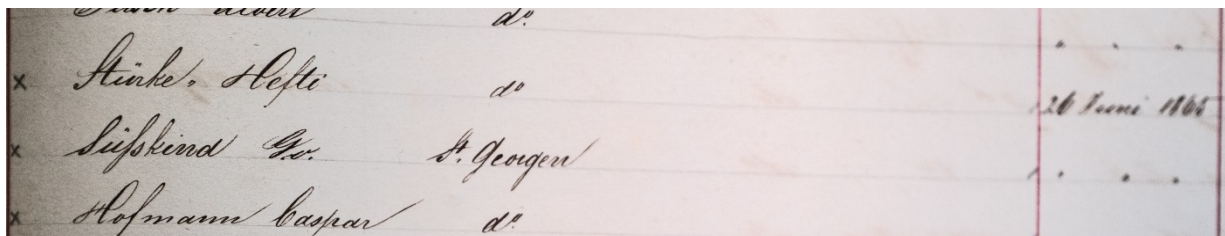 Albert do.
x Stürke-Hefti do 26 Juni 1865
x Süsskind Gv. St. Georgen " " "
x Hofmann Caspar do.